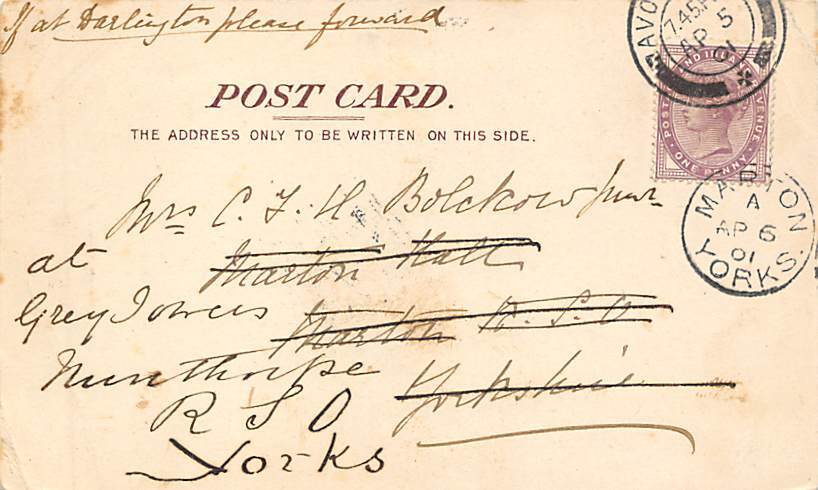 If at Darlington please forward
POST CARD.
THE ADDRESS ONLY TO BE WRITTEN ON THIS SIDE.
AVO
7.45P
AP 5
01
POST ND INLAND VENUE
ONE PENNY
Mrs C. F. H. Bolckow Junr
at Marton Hall
Grey Towers Marton R.S.O
Nunthorpe Yorkshire
R S O
Yorks
MARTON
A
AP 6
01
YORKS.